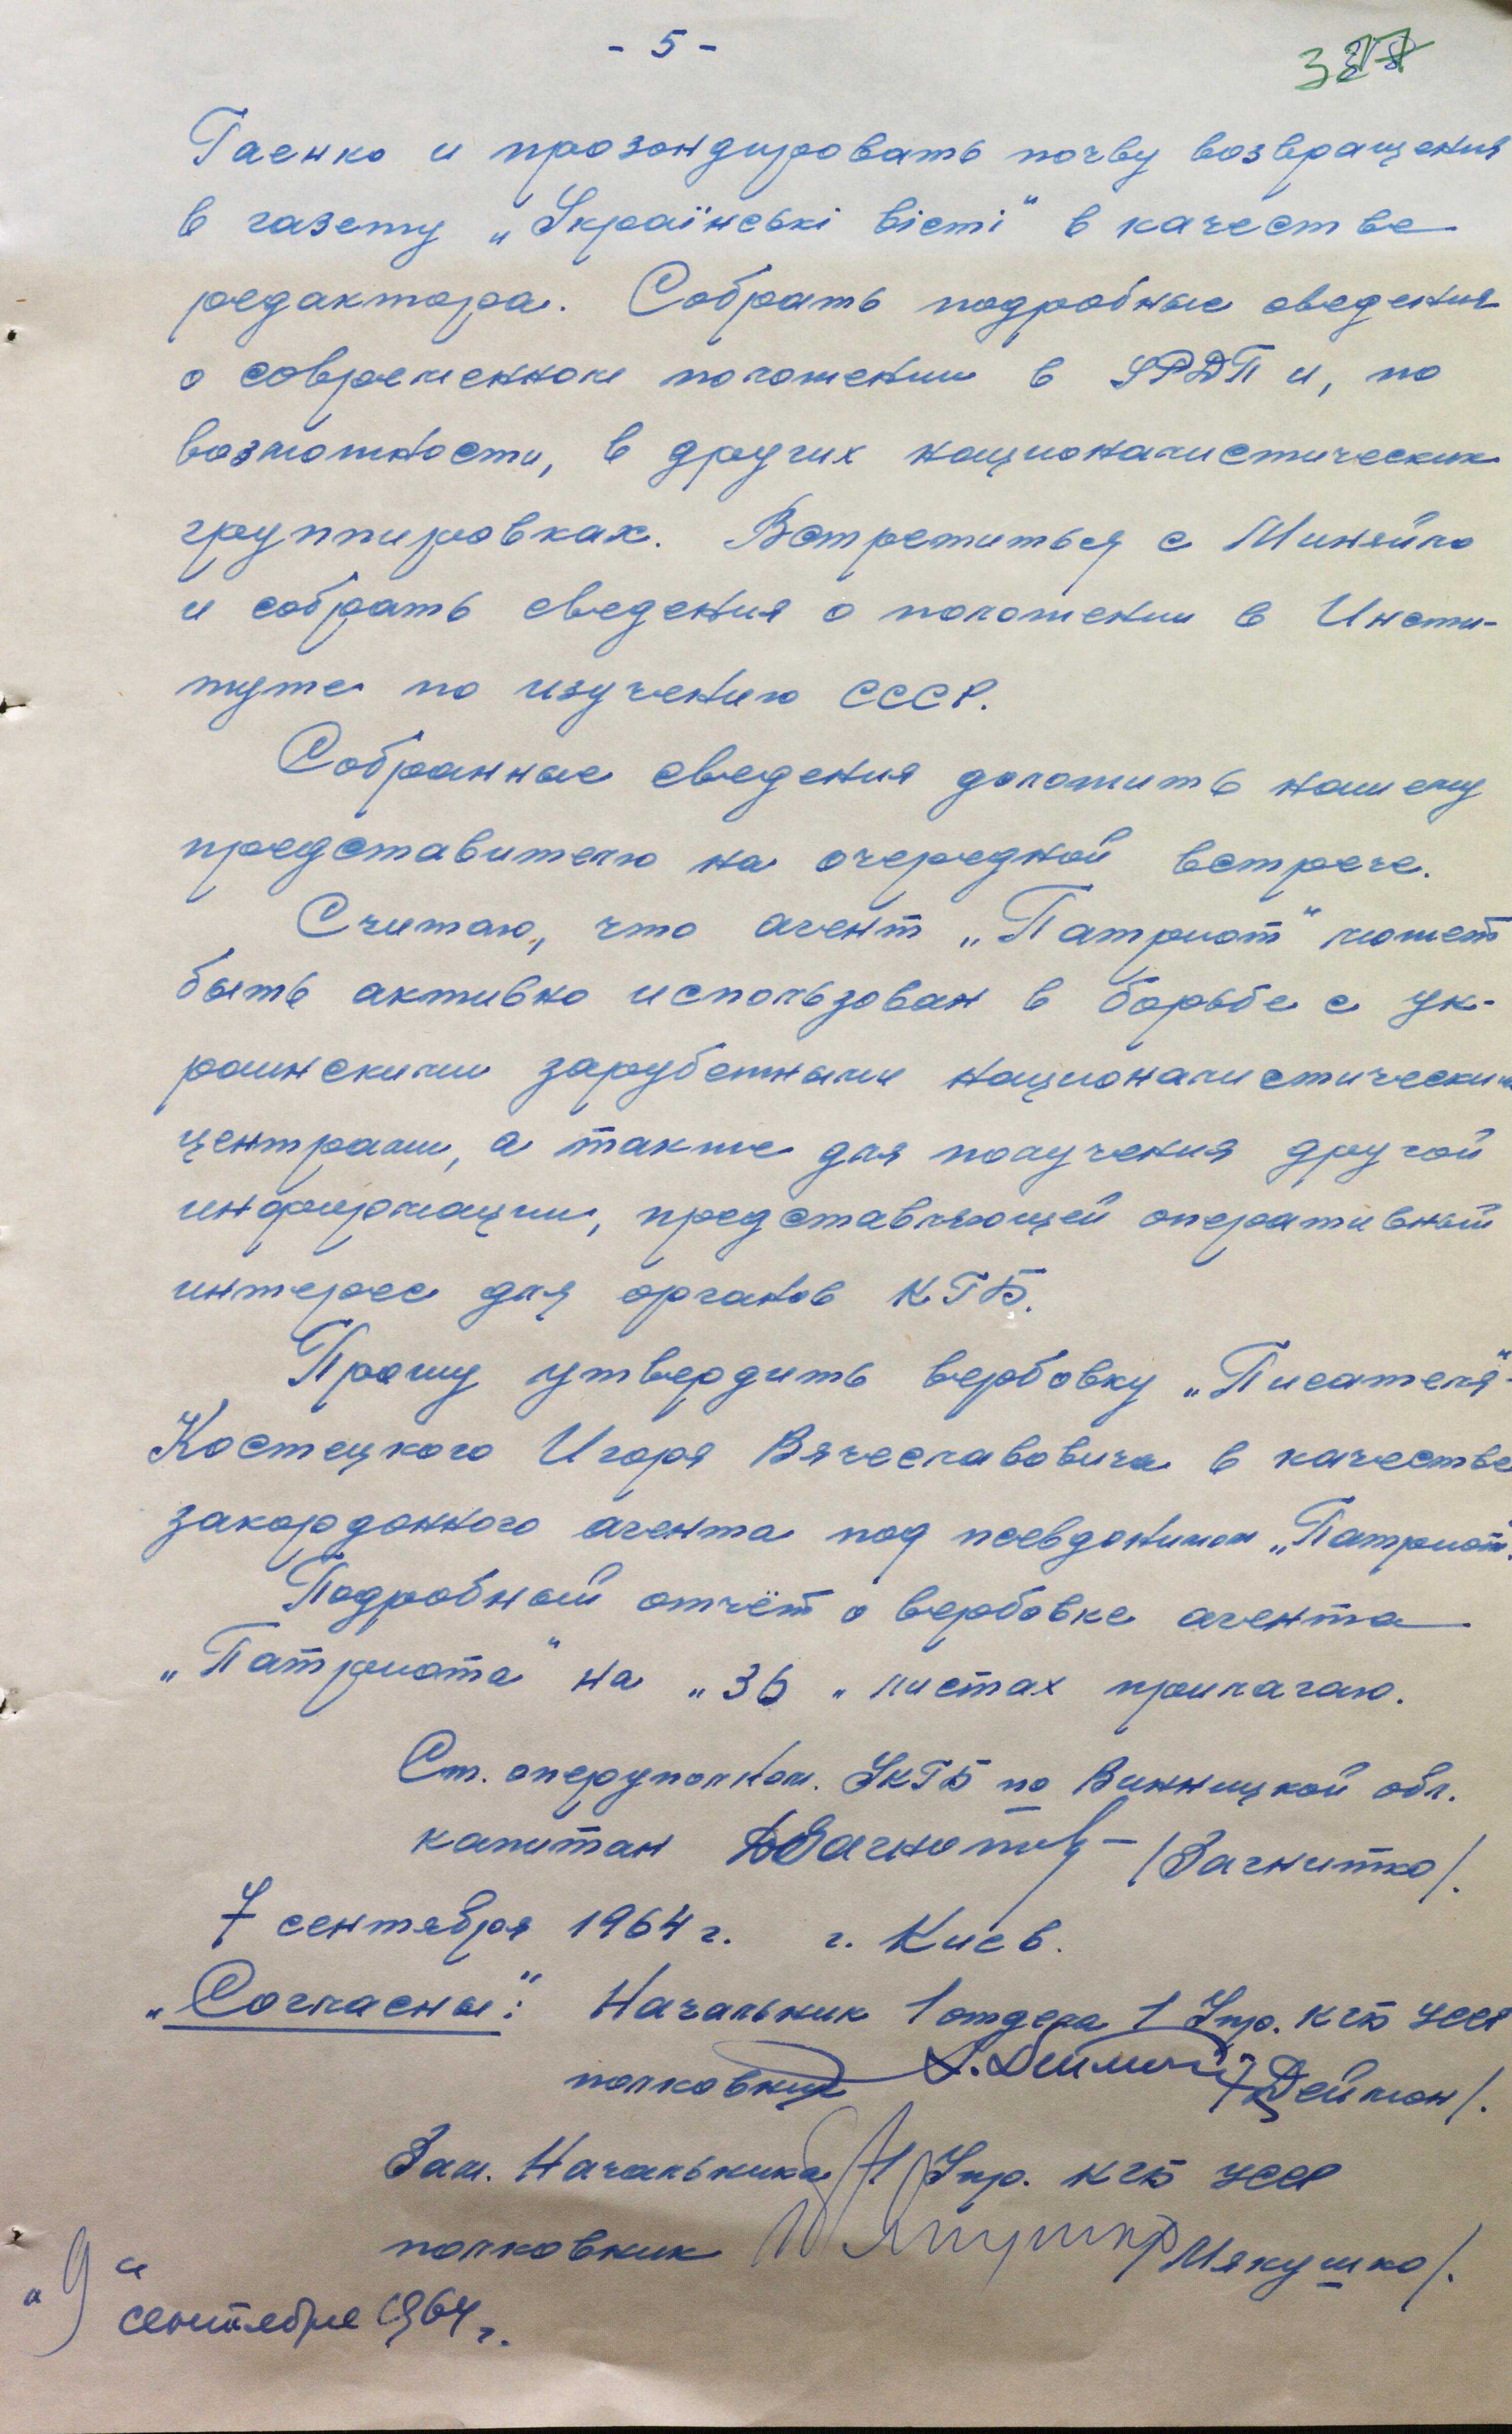 - 5 -
Гаенко и прозондировать почву возвращения
в газету „Українські вісті" в качестве
редактора. Собрать подробные сведения
о современном положении в УРДП и, по
возможности, в других националистических
группировках. Встретиться с Миняйло
и собрать сведения о положении в Инсти-
туте по изучению СССР.
Собранные сведения доложить нашему
представителю на очередной встрече.
Считаю, что агент „Патриот" может
быть активно использован в борьбе с ук-
раинскими зарубежными националистическими
центрами, а также для получения другой
информации, представляющей оперативный
интерес для органов КГБ.
Прошу утвердить вербовку „Писателя"-
Костецкого Игоря Вячеславовича в качестве
закордонного агента под псевдонимом „Патриот".
Подробный отчёт о вербовке агента
„Патриота" на „36 „ листах прилагаю.
Ст. оперуполном. УКГБ по Винницкой обл.
капитан /Загнитко/.
7 сентября 1964 г. г. Киев.
„Согласны": Начальник 1 отдела 1 Упр. КГБ УССР
полковник /Деймон/.
Зам. Начальника 1 Упр. КГБ УССР
полковник /Мякушко/.
„9"
сентября 1964 г.